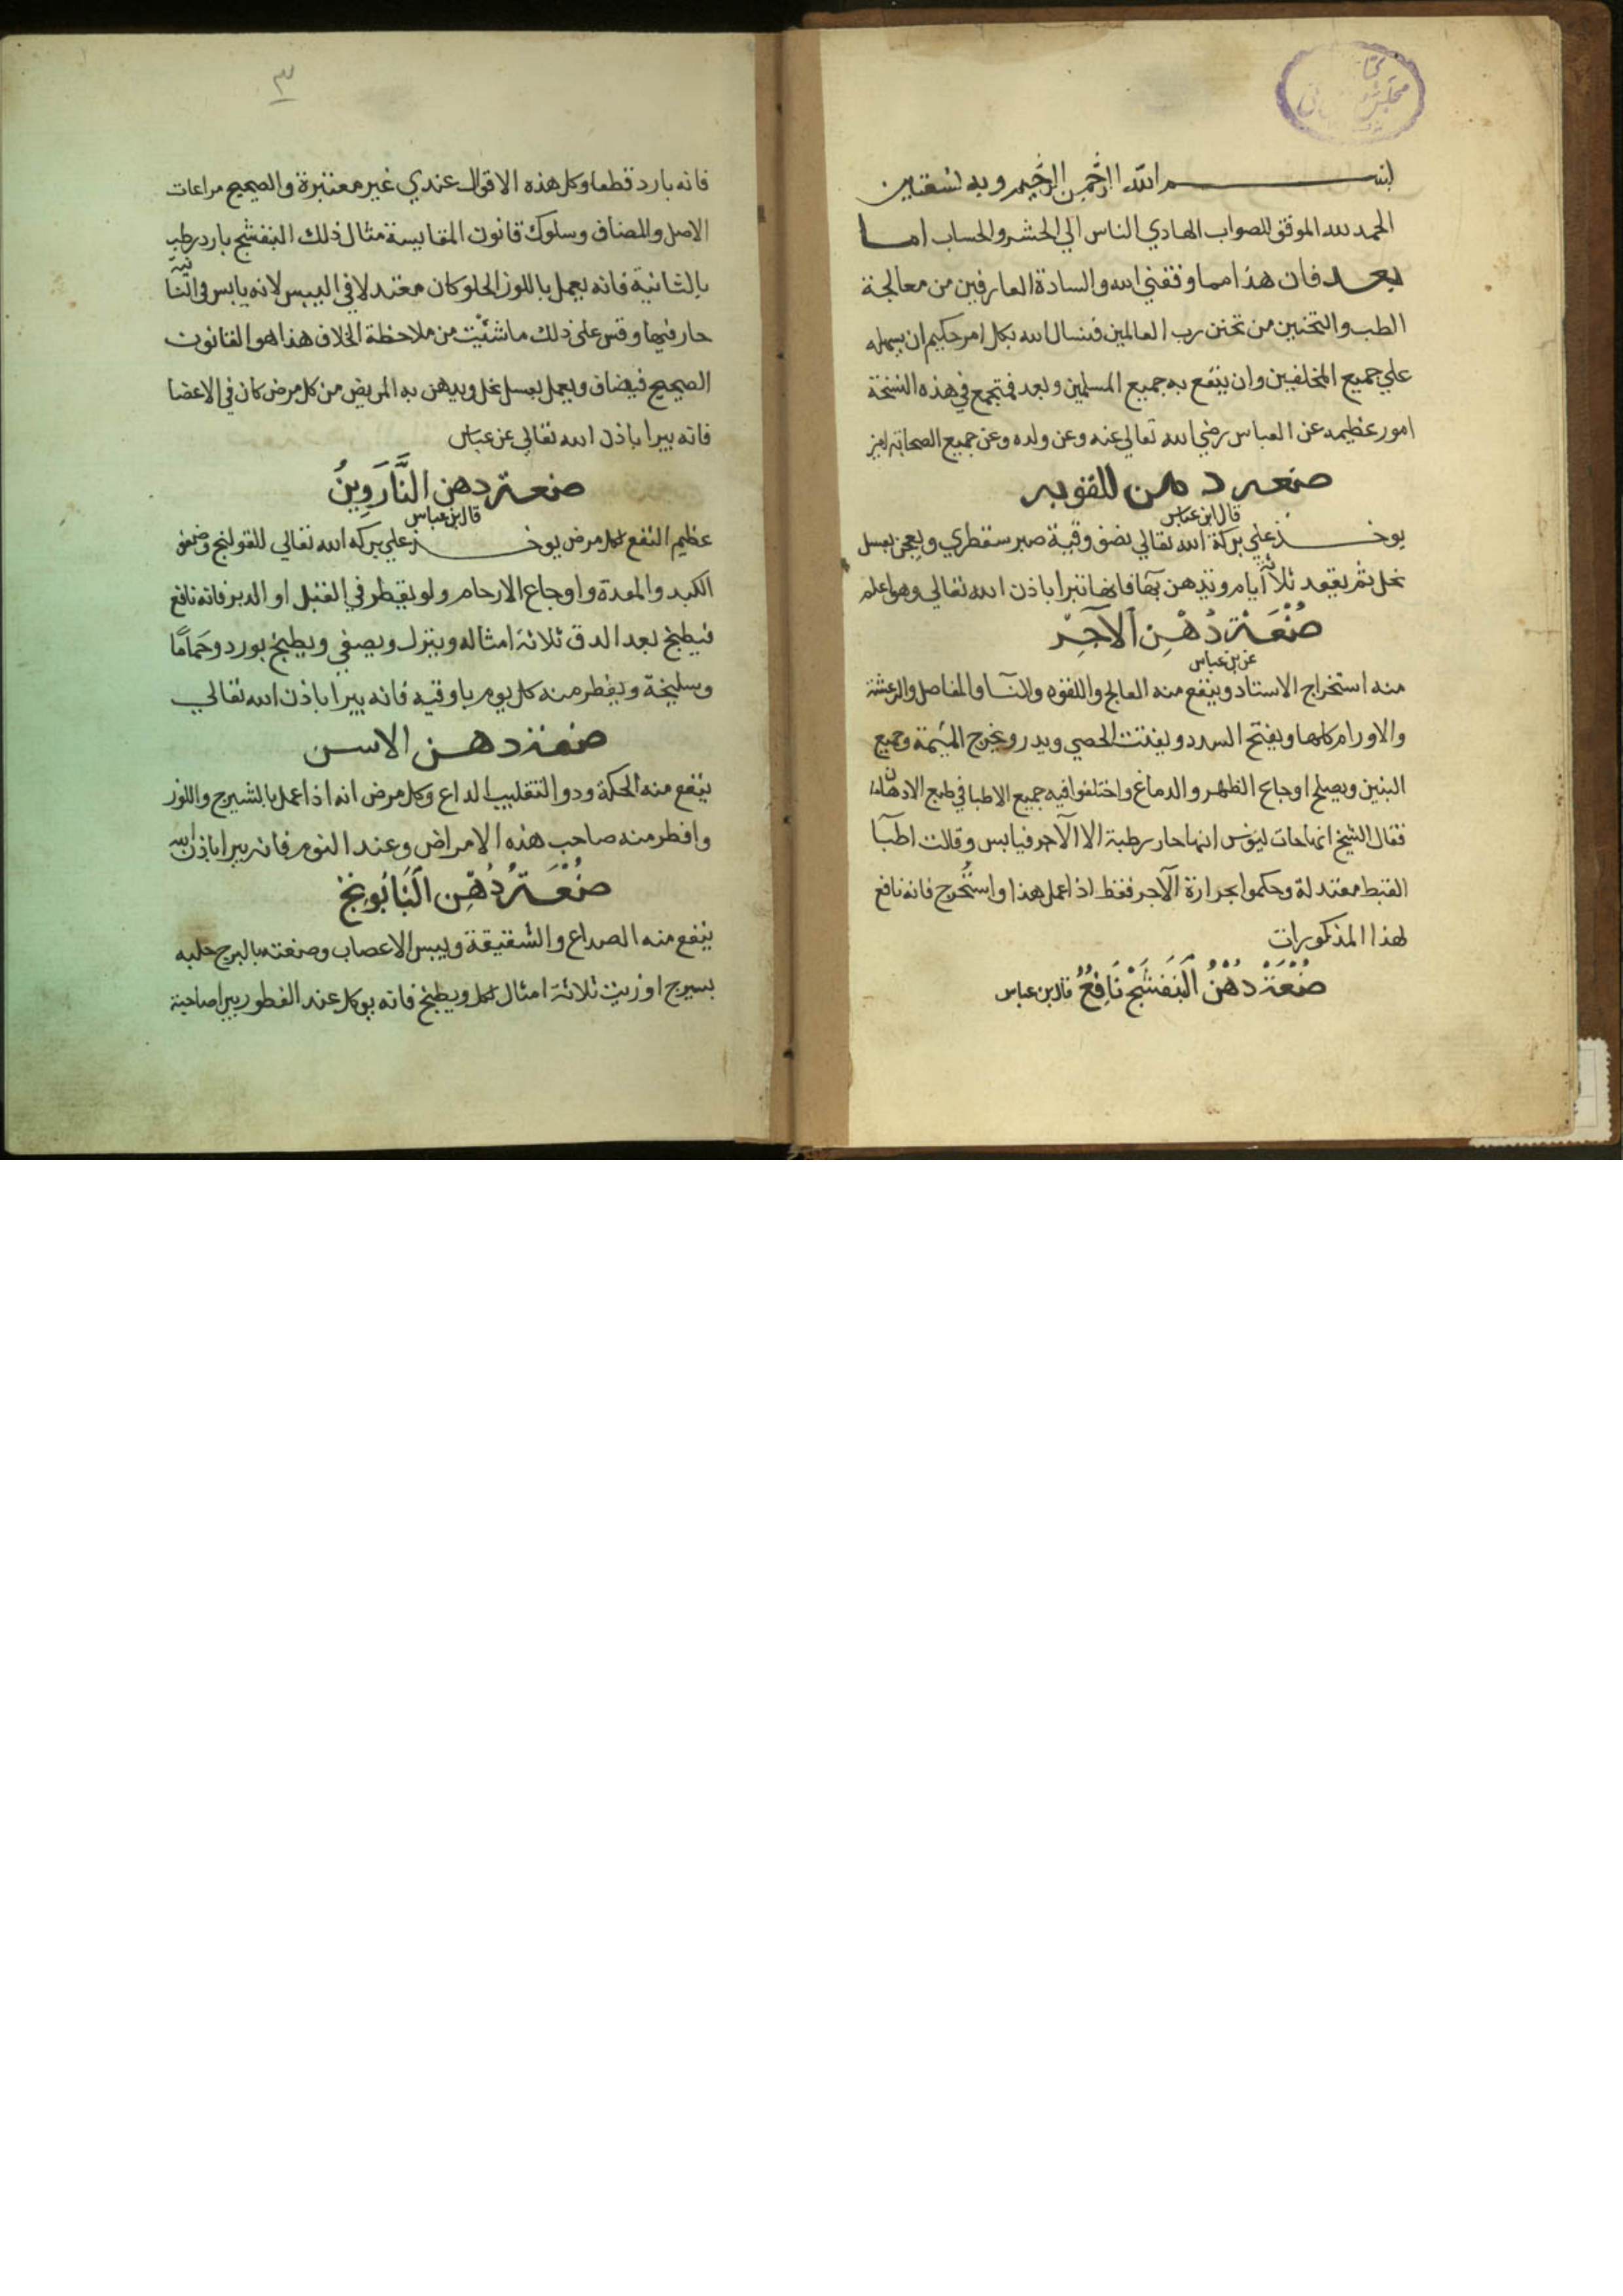 بسم الله الرحمن الرحيم وبه نستعين
الحمد لله الموفق للصواب الهادي الناس الي الحشر والحساب اما
بعد فان هذا مما وفقني الله والسادة العارفين من معالجة
الطب والتحنين من تحنن رب العالمين فنسال الله بكل امر حكيم ان يسهله
علي جميع المخلفين وان ينفع به جميع المسلمين وبعد فتجمع في هذه النسخة
امور عظيمه عن العباس رضي الله تعالي عنه وعن ولده وعن جميع الصحابة
صنعه دهن للقوبه
قال ابن عباس
يوخذ علي بركة الله تعالي نصف وقية صبر سقطري ويعجن بعسل
نحل ثم يقعد ثلاثة ايام وتدهن بها فانها تبرا باذن الله تعالي وهو اعلم
صُنْعَة دُهْنِ الآجِرّ
عن بن عباس
منه استخراج الاستاد وينفع منه الفالج واللقوه والنسا والمفاصل والرعشة
والاورام كلها ويفتح السدد ويفتت الحصي ويدر ويخرج المشيمة وجميع
البنين ويصلح اوجاع الظهر والدماغ واختلفوا فيه جميع الاطبا في طبع الادهان
فقال الشيخ انها حارة رطبة الا الآجر فيابس وقالت اطبآ
القبط معتدلة وحكموا بحرارة الآجر فقط اذا عمل هذا واستُخرج فانه نافع
لهذا المذكورات
صُنْعَة دُهْنُ الْبَنَفْسَجْ نَافِعٌ قال بن عباس
٣
فانه بارد قطعا وكل هذه الاقوال عندي غير معتبرة والصحيح مراعات
الاصل والمضاف وسلوك قانون المقايسة مثال ذلك البنفسج بارد رطب
بالثانية فانه يعمل باللوز الحلو كان معتدلا في اليبس لانه يابس في الثانية
حار فيها وقس على ذلك ما شئت من ملاحظة الخلاف هذا هو القانون
الصحيح فيضاف ويعمل بعسل نحل ويدهن به المريض من كل مرض كان في الاعضا
فانه يبرا باذن الله تعالي عن عباس
صنعة دهن النَّارَوِينُ
قال بن عباس
عظيم النفع لكل مرض يوخذ علي بركه الله تعالي للقولنج وضعف
الكبد والمعدة واوجاع الارحام ولو يقطر في القبل او الدبر فانه نافع
فيطبخ بعد الدق ثلاثة امثاله وينزل ويصفي ويطبخ بورد وحَمَامًا
وسليخة ويفطر منه كل يوم باوقيه فانه يبرا باذن الله تعالي
صنعة دهن الاسن
ينفع منه الحكة ودو التقليب الداع وكل مرض انه اذا عمل بالشيرج واللوز
وافطر منه صاحب هذه الامراض وعند النوم فانه يبرا باذن الله
صُنْعَةُ دُهْنِ الْبَابُونجْ
ينفع منه الصداع والشقيقة ويبس الاعصاب وصنعته بالبرج حلبه
بسيرج او زيت ثلاثة امثال لكل ويطبخ فانه يوكل عند الفطور يبرا صاحبة